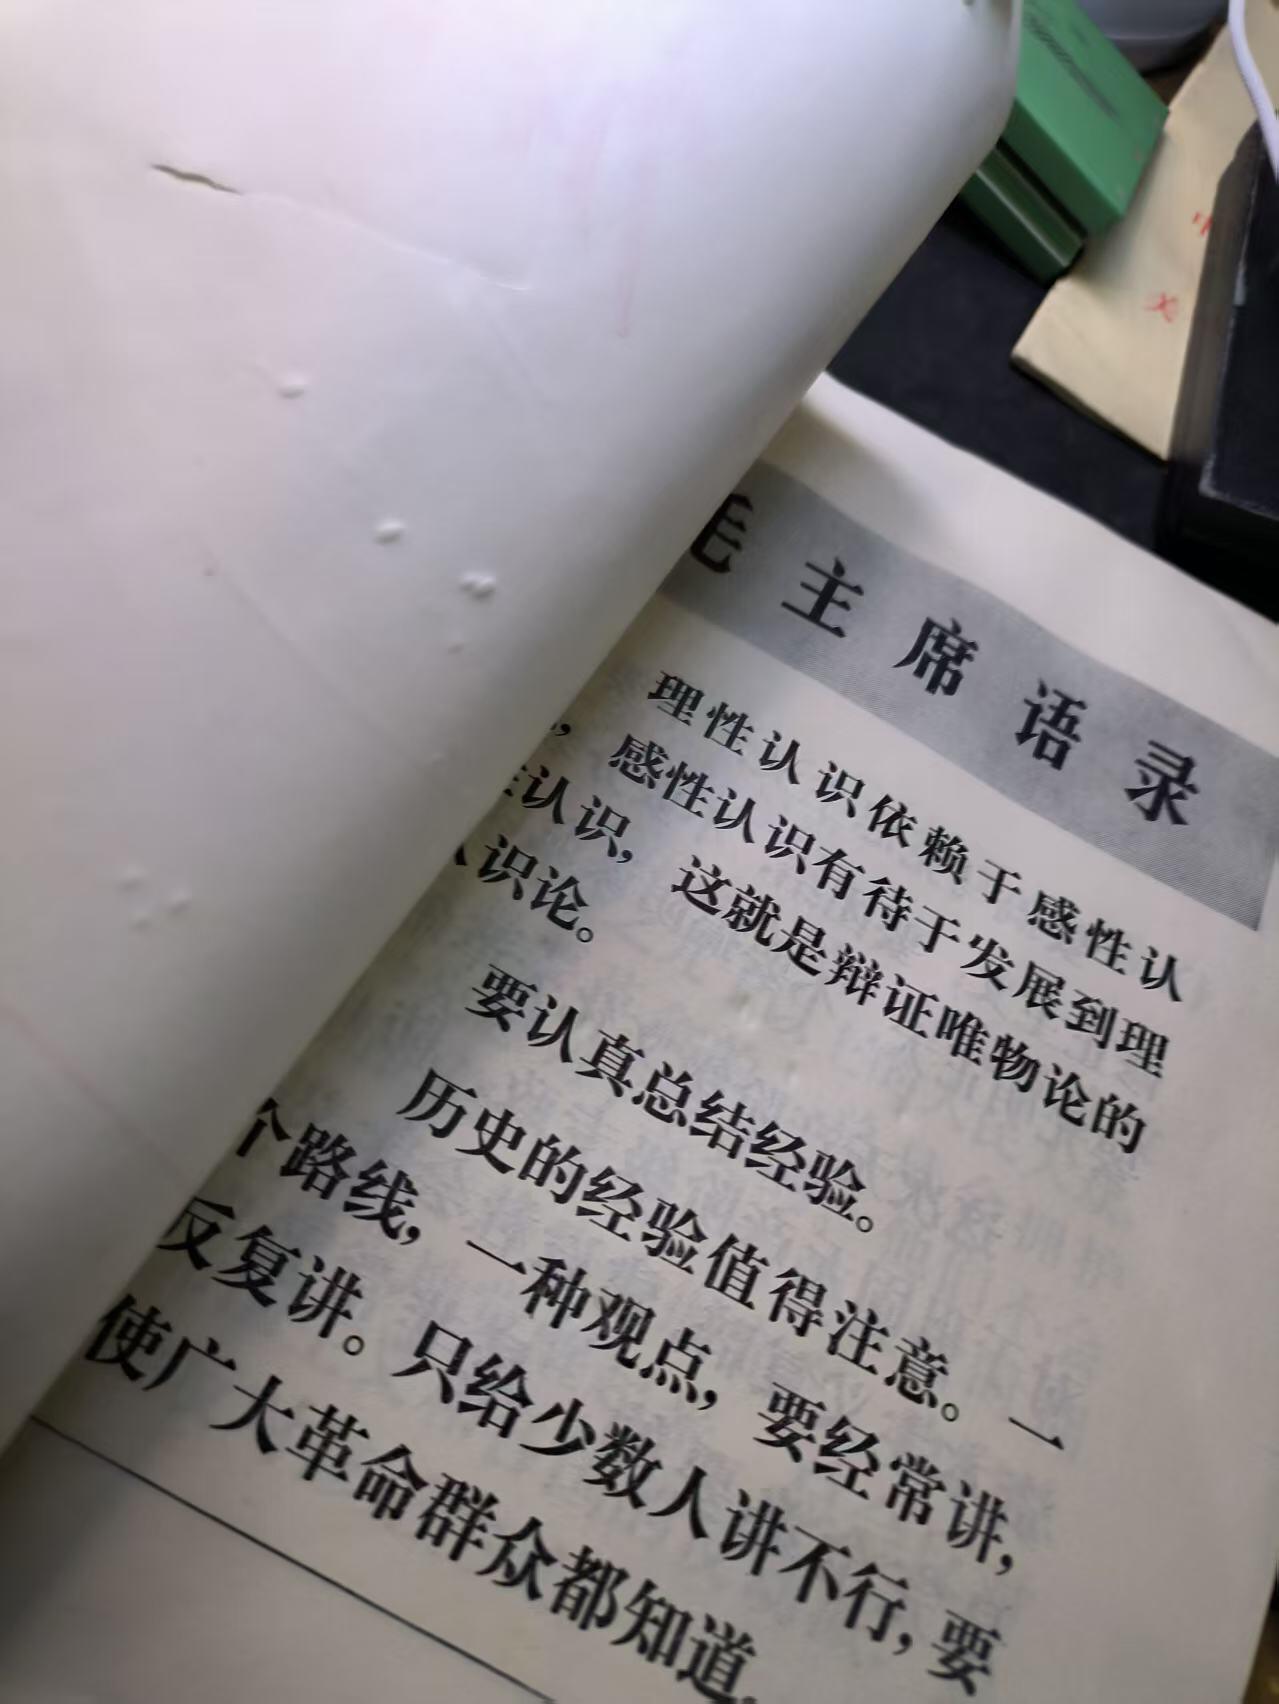 毛主席语录
理性认识依赖于感性认
，感性认识有待于发展到理
认识，这就是辩证唯物论的
识论。
要认真总结经验。
历史的经验值得注意。一
个路线，一种观点，要经常讲，
反复讲。只给少数人讲不行，要
使广大革命群众都知道。
中
关